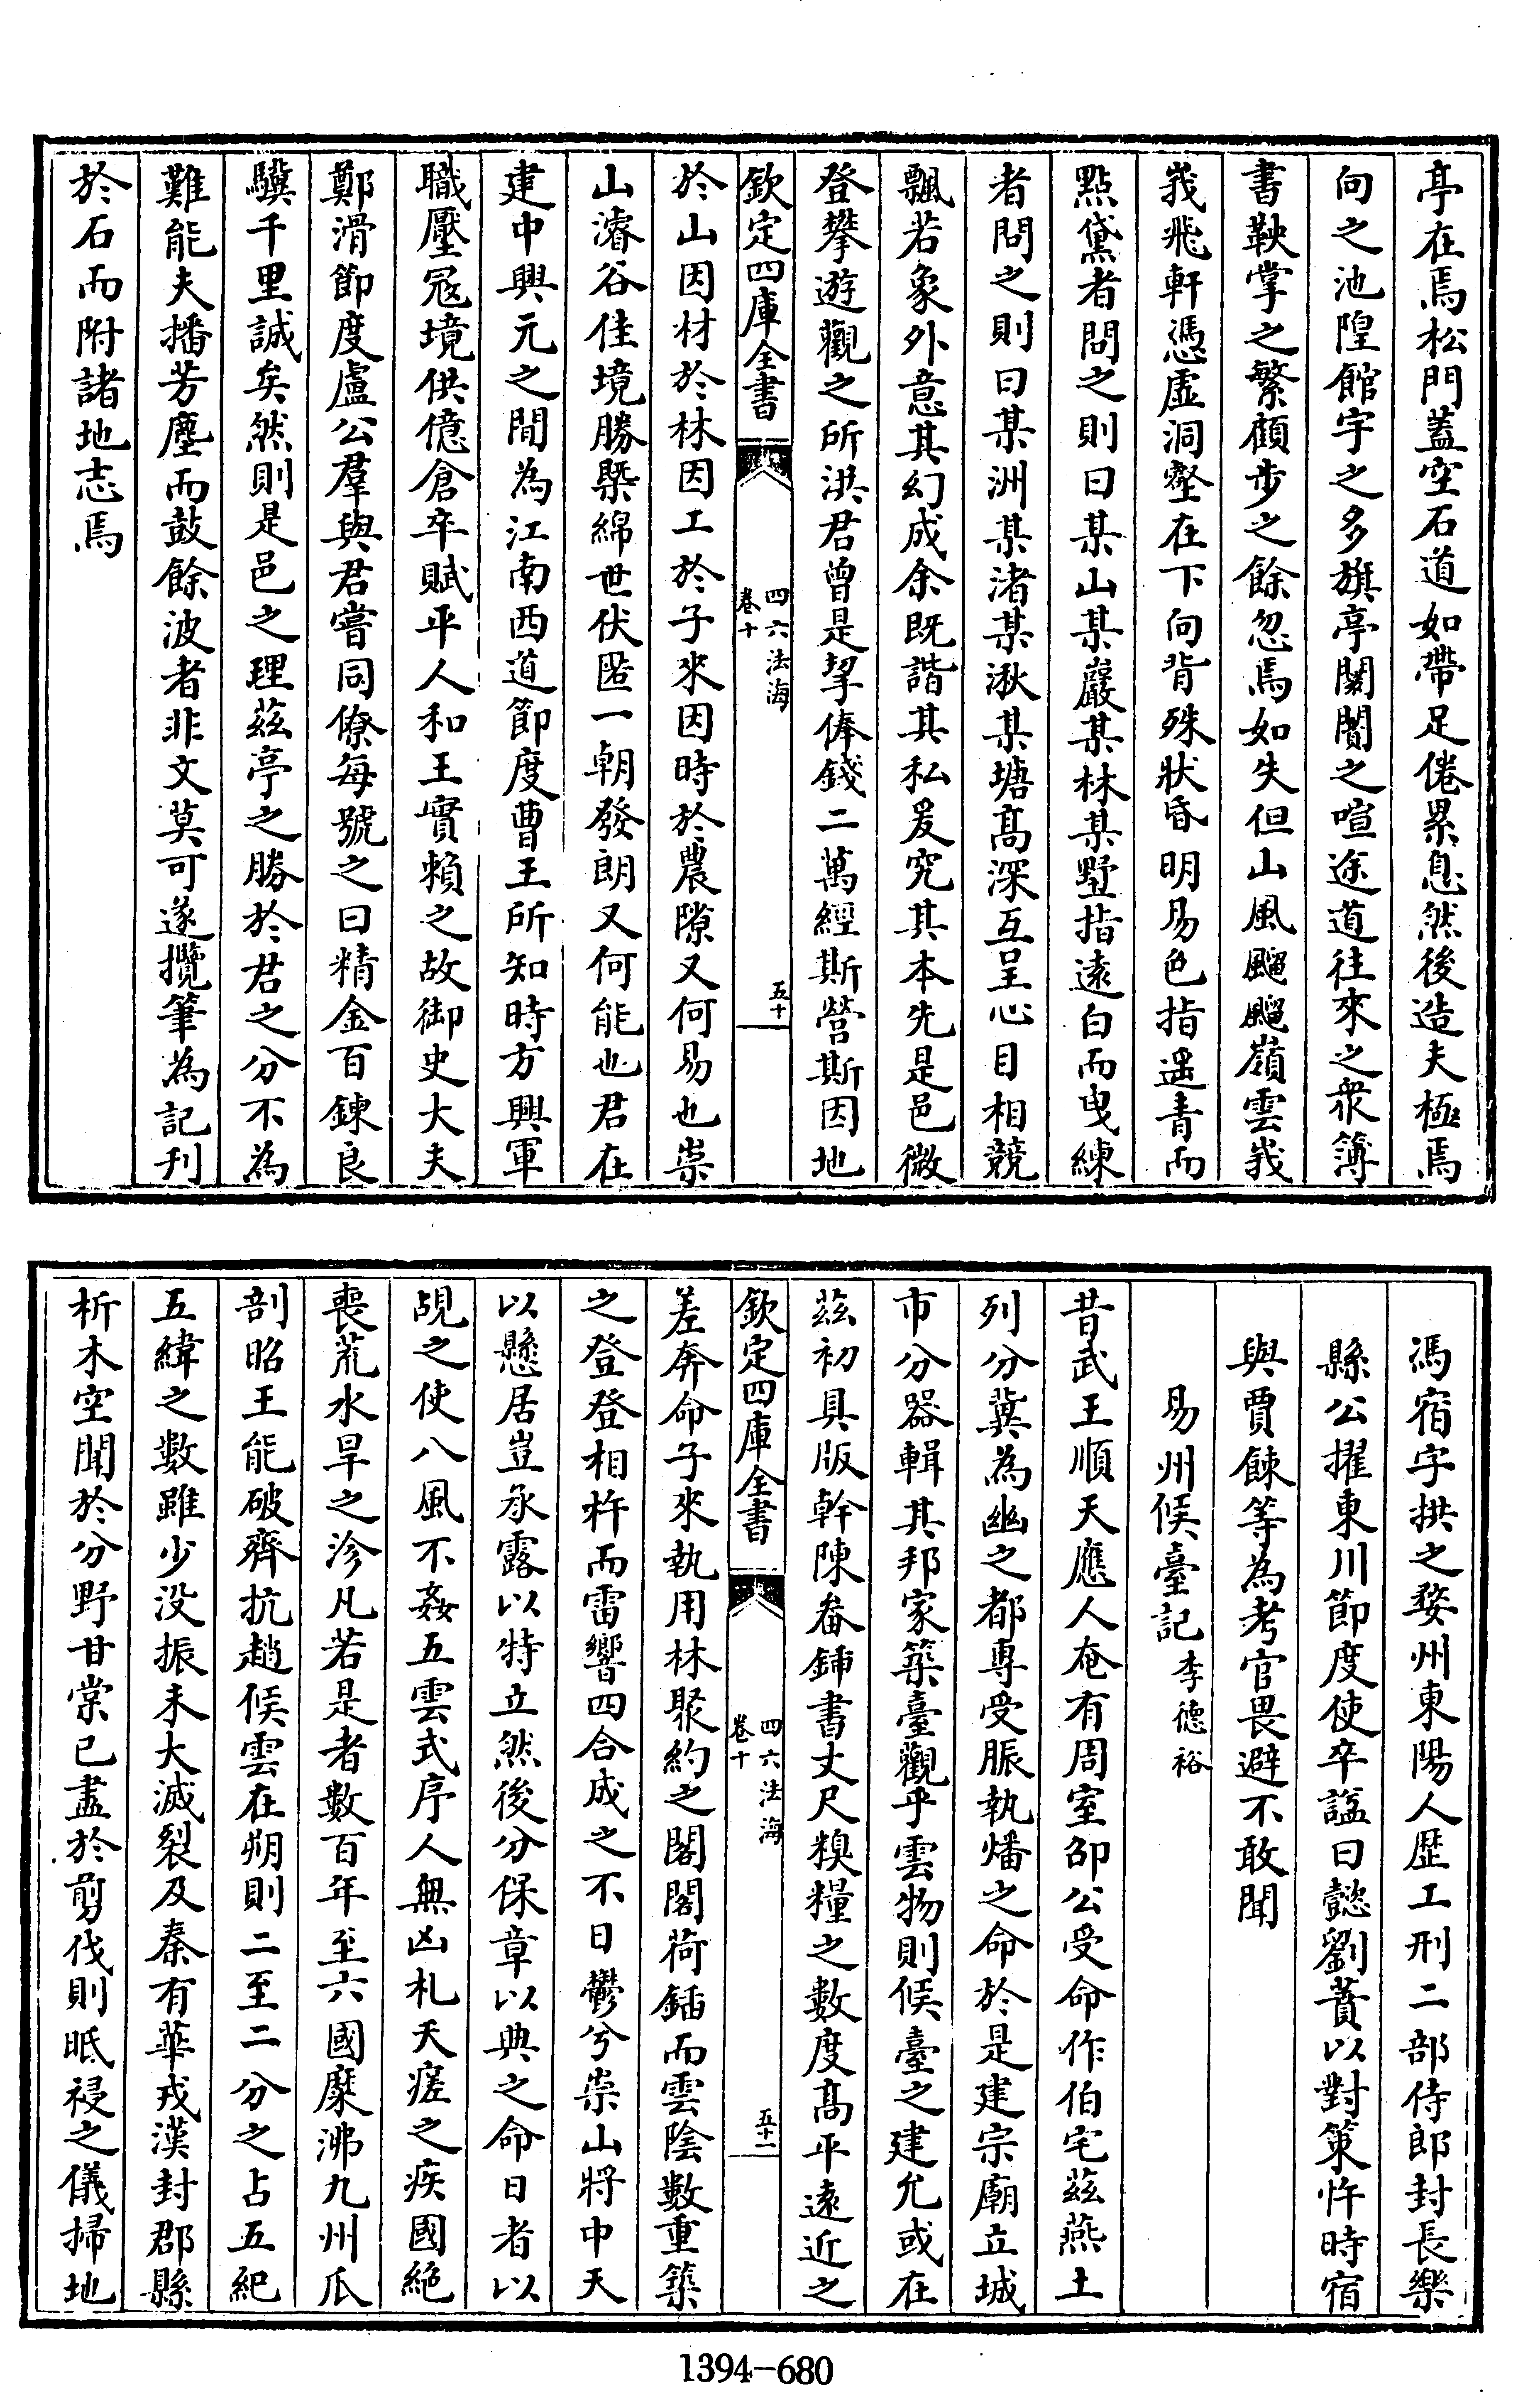 亭在焉松門蓋空石道如帶足倦累息然後造夫極焉
向之池隍館宇之多旗亭闤闠之喧途道往來之衆簿
書鞅掌之繁顧步之餘忽焉如失但山風飀飀嶺雲峩
峩飛軒憑虛洞壑在下向背殊狀昏明易色指遥青而
點黛者問之則曰某山某巖某林某墅指遠白而曳練
者問之則曰某洲某渚某湫某塘髙深互呈心目相競
飄若象外意其幻成余既諧其私爰究其本先是邑微
登攀遊觀之所洪君曽是挈俸錢二萬經斯營斯因地
欽定四庫全書
四六法海
卷十
五十
於山因材於林因工於子來因時於農隙又何易也崇
山濬谷佳境勝槩綿世伏匿一朝發朗又何能也君在
建中興元之間為江南西道節度曹王所知時方興軍
職壓冦境供億倉卒賦平人和王實賴之故御史大夫
鄭滑節度盧公羣與君嘗同僚每號之曰精金百鍊良
驥千里誠矣然則是邑之理兹亭之勝於君之分不為
難能夫播芳塵而鼓餘波者非文莫可遂攬筆為記刋
於石而附諸地志焉
馮宿字拱之婺州東陽人歴工刑二部侍郎封長樂
縣公擢東川節度使卒諡曰懿劉蕡以對策忤時宿
與賈餗等為考官畏避不敢聞
易州候臺記 李德裕
昔武王順天應人奄有周室邵公受命作伯宅兹燕土
列分冀為幽之都專受脤執燔之命於是建宗廟立城
市分器輯其邦家築臺觀乎雲物則候臺之建允或在
兹初具版幹陳畚鍤書丈尺糗糧之數度髙平遠近之
欽定四庫全書
四六法海
卷十
五十一
差奔命子來執用林聚約之閣閣荷鍤而雲陰數重築
之登登相杵而雷響四合成之不日鬱兮崇山將中天
以懸居豈承露以特立然後分保章以典之命日者以
覘之使八風不姦五雲式序人無凶札夭瘥之疾國絶
喪荒水旱之沴凡若是者數百年至六國糜沸九州瓜
剖昭王能破齊抗趙候雲在朔則二至二分之占五紀
五緯之數雖少没振未大滅裂及秦有華戎漢封郡縣
析木空聞於分野甘棠已盡於剪伐則眂祲之儀掃地
1394-680